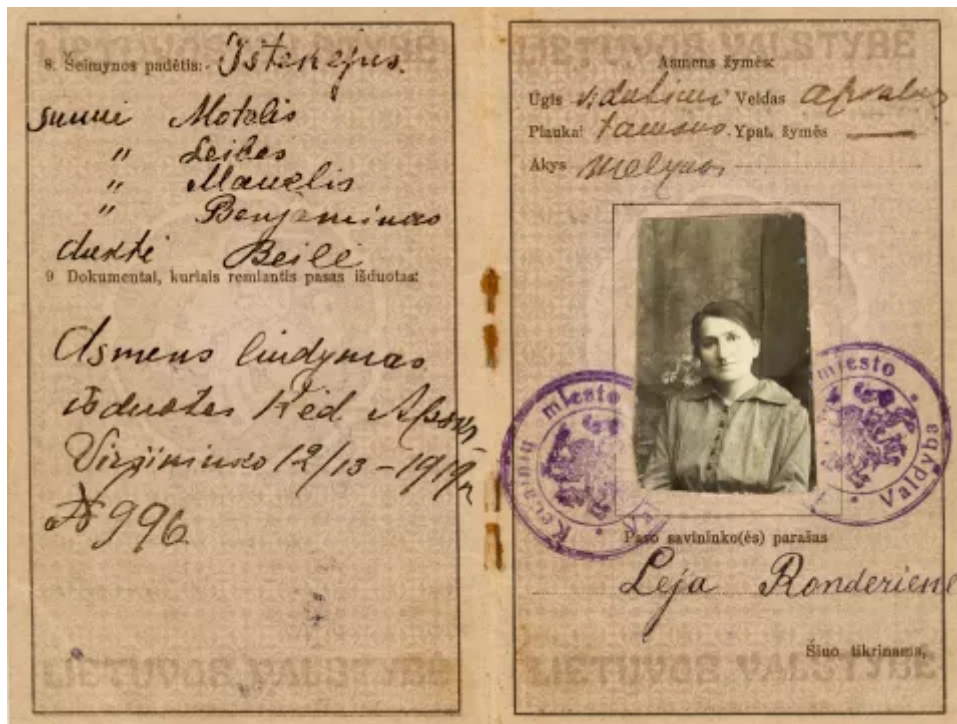 LIETUVOS VALSTYBĖ
8. Šeimynos padėtis:- Ištekėjus.
sunui Motelis
" Leibas
" Mauselis
" Benjaminas
duktė Beilė
9 Dokumentai, kuriais remiantis pasas išduotas:
Asmens liudymas
išduotas Kėd. Apskr.
Viršininko 12/13 - 1919 m
№ 996
LIETUVOS VALSTYBĖ
LIETUVOS VALSTYBĖ
Asmens žymės:
Ugis vidutinis Veidas apvalus
Plaukai tamsus. Ypat. žymės
Akys melynos
Kėdainių miesto Valdyba
Paso savininko(ės) parašas
Leja Ronderienė
Šiuo tikrinama,
LIETUVOS VALSTYBĖ